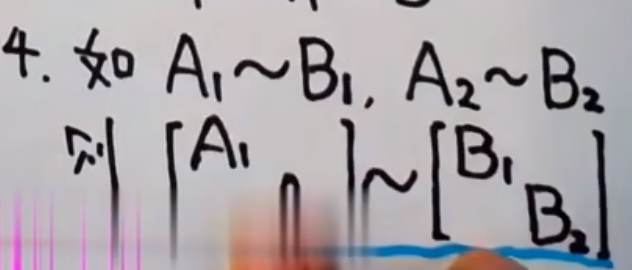 4. 如 A₁~B₁, A₂~B₂
则 [A₁ ] ~ [B₁
B₂]